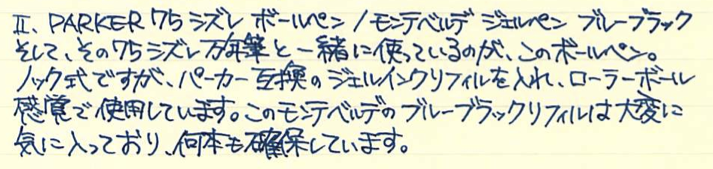 II. PARKER 75 シズレ ボールペン / モンテベルデ ジェルペン ブルーブラック
そして、その75シズレ万年筆と一緒に使っているのが、このボールペン。
ノック式ですが、パーカー互換のジェルインクリフィルを入れ、ローラーボール
感覚で使用しています。このモンテベルデのブルーブラックリフィルは大変に
気に入っており、何本も確保しています。